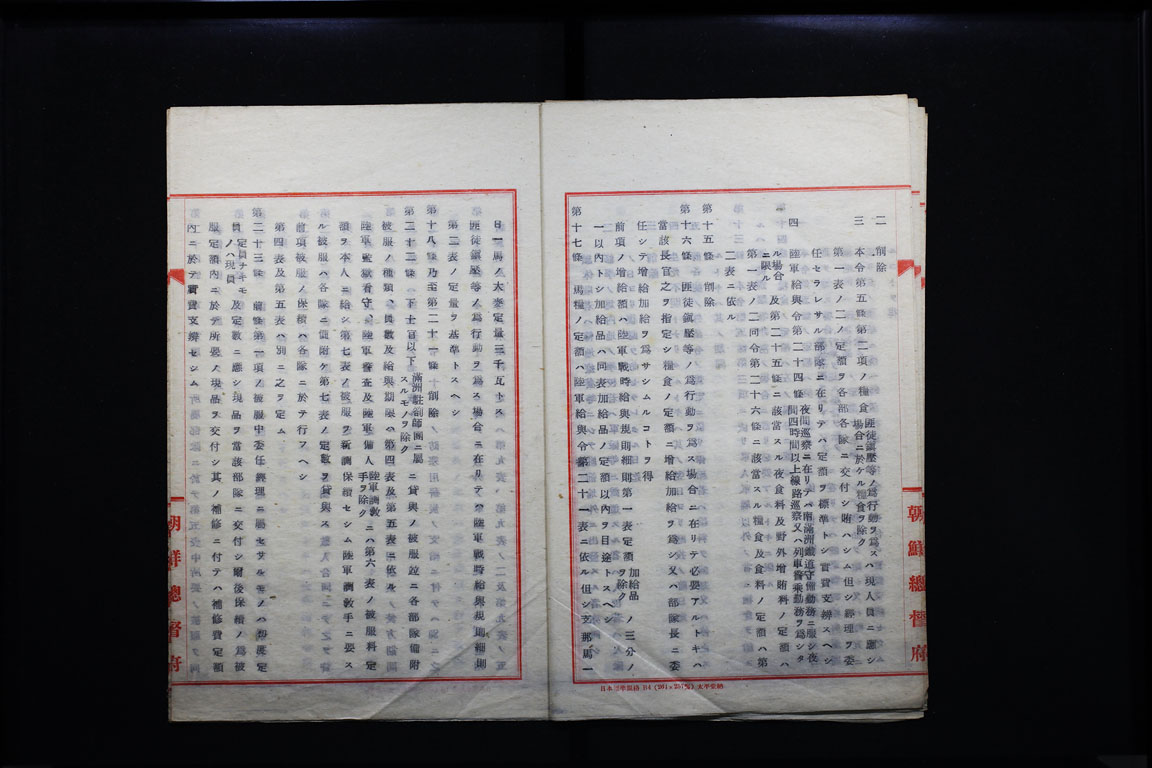 二 削除
三 本令第五條第二項ノ糧食 匪徒鎭壓等ノ爲行動ヲ爲ス場合ニ於ケル糧食ヲ除ク ハ現人員ニ應シ
第一表ノ二ノ定額ヲ各部各隊ニ交付シ賄ハシム但シ經理ヲ委
任セラレサル部隊ニ在リテハ定額ヲ標準トシ實費支辨スヘシ
四 陸軍給與令第二十四條 夜間巡察ニ在リテハ南滿洲鐵道守備勤務ニ服シ夜間四時間以上線路巡察又ハ列車警乘勤務ヲ爲シタ
ル場合ニ限ル 及第二十五條ニ該當スル夜食料及野外增賄料ノ定額ハ
第一表ノ二同令第二十六條ニ該當スル糧食及食料ノ定額ハ第
二表ニ依ル
第十五條 削除
第十六條 匪徒鎭壓等ノ爲行動ヲ爲ス場合ニ在リテ必要アルトキハ
當該長官之ヲ指定シ糧食ノ定額ニ增給加給ヲ爲シ又ハ部隊長ニ委
任シテ增給加給ヲ爲サシムルコトヲ得
前項ノ增給額ハ陸軍戰時給與規則細則第一表定額 加給品ヲ除ク ノ三分ノ
一以內トシ加給品ハ同表加給品ノ定額以內ヲ目途トスヘシ
第十七條 馬糧ノ定額ハ陸軍給與令第二十一表ニ依ル但シ支那馬一
日一馬ノ大麥定量三千瓦トス
匪徒鎭壓等ノ爲行動ヲ爲ス場合ニ在リテハ陸軍戰時給與規則細則
第二表ノ定量ヲ基準トスヘシ
第十八條乃至第二十一條 削除
第二十二條 下士官以下 滿洲駐劄師團ニ屬スルモノヲ除ク ニ貸與ノ被服竝ニ各部隊備附
被服ノ種類、員數及給與期限ハ第四表及第五表ニ依ル
陸軍監獄看守、陸軍警査及陸軍傭人 陸軍調敎手ヲ除ク ニハ第六表ノ被服料定
額ヲ本人ニ給シ第七表ノ被服ヲ新調保續セシム陸軍調敎手ニ要ス
ル被服ハ各隊ニ備附ケ第七表ノ定數ヲ貸與ス
前項被服ノ保續ハ各隊ニ於テ行フヘシ
第四表及第五表ハ別ニ之ヲ定ム
第二十三條 前條第一項ノ被服中委任經理ニ屬セサルモノハ初度定
員 定員ナキモノハ現員 及定數ニ應シ現品ヲ當該部隊ニ交付シ爾後保續ノ爲被
服定額內ニ於テ所要ノ現品ヲ交付シ其ノ補修ニ付テハ補修費定額
內ニ於テ實費支辨セシム
朝鮮總督府
朝鮮總督府